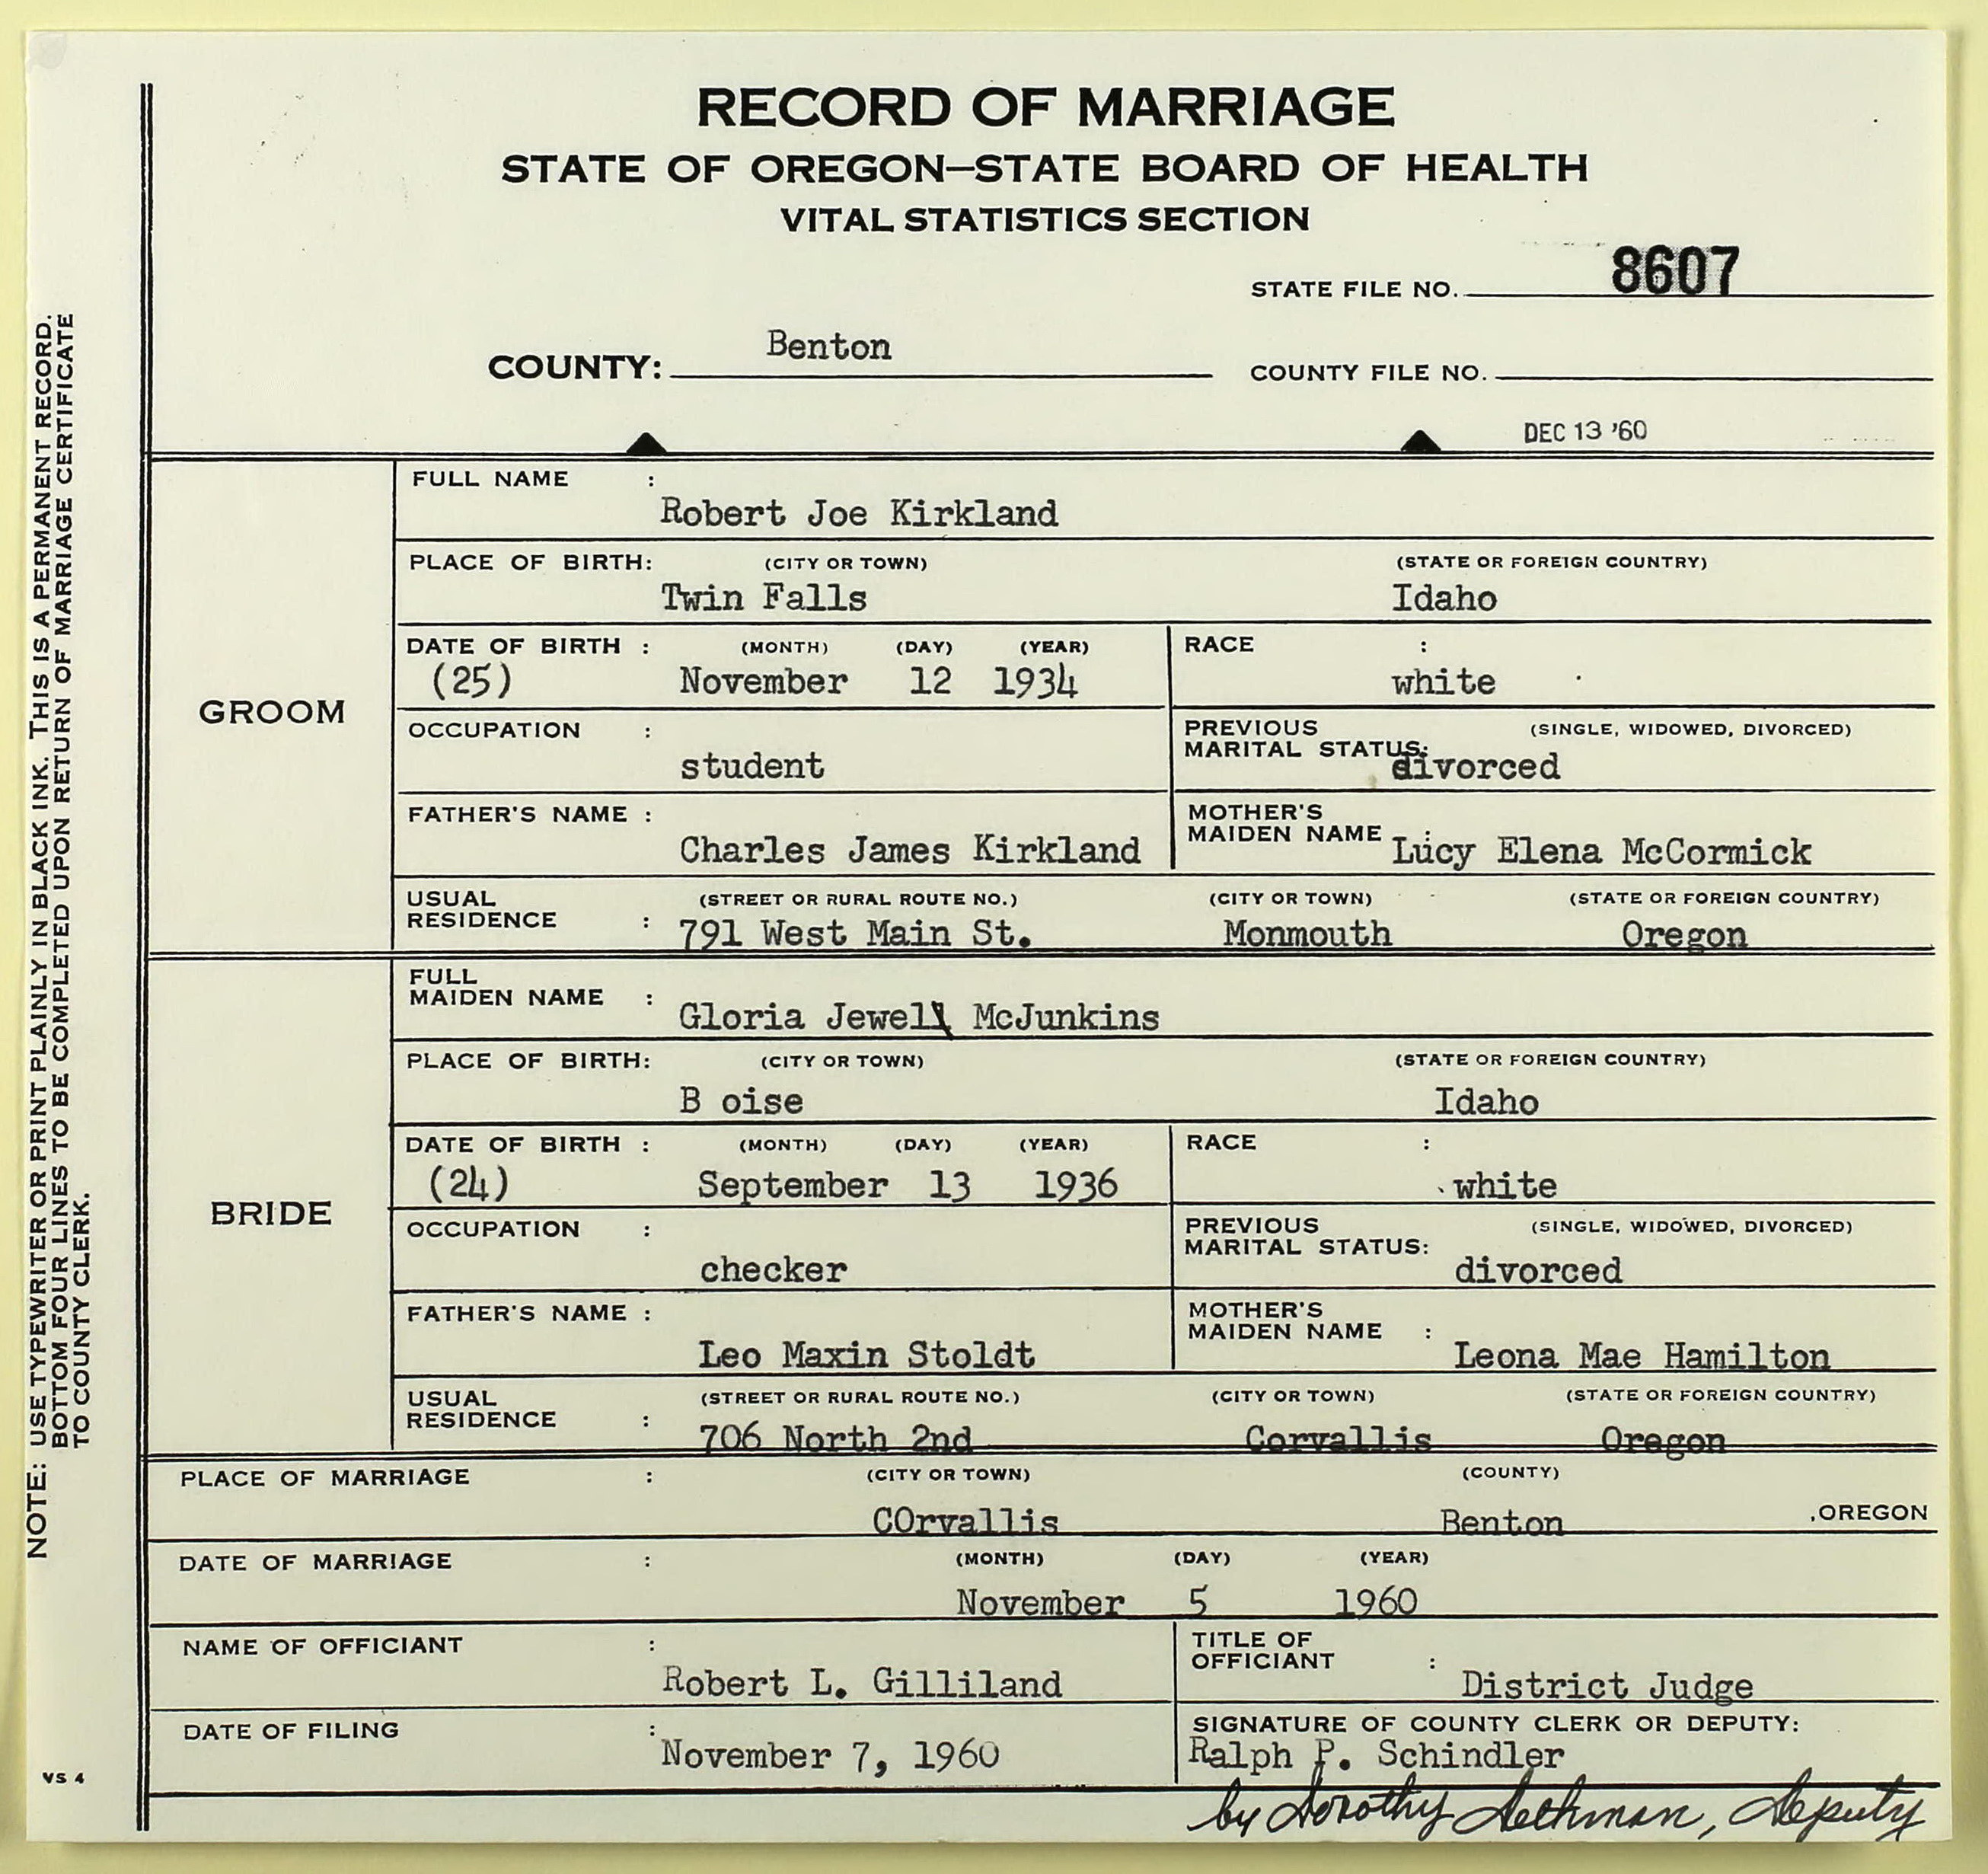 RECORD OF MARRIAGE
STATE OF OREGON—STATE BOARD OF HEALTH
VITAL STATISTICS SECTION
STATE FILE NO. 8607
COUNTY: Benton COUNTY FILE NO.
DEC 13 '60
GROOM
FULL NAME :
Robert Joe Kirkland
PLACE OF BIRTH: (CITY OR TOWN) (STATE OR FOREIGN COUNTRY)
Twin Falls Idaho
DATE OF BIRTH : (MONTH) (DAY) (YEAR) RACE :
(25) November 12 1934 white
OCCUPATION : PREVIOUS MARITAL STATUS: (SINGLE, WIDOWED, DIVORCED)
student divorced
FATHER'S NAME : MOTHER'S MAIDEN NAME :
Charles James Kirkland Lucy Elena McCormick
USUAL RESIDENCE : (STREET OR RURAL ROUTE NO.) (CITY OR TOWN) (STATE OR FOREIGN COUNTRY)
791 West Main St. Monmouth Oregon
BRIDE
FULL MAIDEN NAME :
Gloria Jewell McJunkins
PLACE OF BIRTH: (CITY OR TOWN) (STATE OR FOREIGN COUNTRY)
B oise Idaho
DATE OF BIRTH : (MONTH) (DAY) (YEAR) RACE :
(24) September 13 1936 white
OCCUPATION : PREVIOUS MARITAL STATUS: (SINGLE, WIDOWED, DIVORCED)
checker divorced
FATHER'S NAME : MOTHER'S MAIDEN NAME :
Leo Maxin Stoldt Leona Mae Hamilton
USUAL RESIDENCE : (STREET OR RURAL ROUTE NO.) (CITY OR TOWN) (STATE OR FOREIGN COUNTRY)
706 North 2nd Corvallis Oregon
PLACE OF MARRIAGE : (CITY OR TOWN) (COUNTY)
COrvallis Benton ,OREGON
DATE OF MARRIAGE : (MONTH) (DAY) (YEAR)
November 5 1960
NAME OF OFFICIANT : TITLE OF OFFICIANT :
Robert L. Gilliland District Judge
DATE OF FILING : SIGNATURE OF COUNTY CLERK OR DEPUTY:
November 7, 1960 Ralph P. Schindler
by Dorothy , Deputy
NOTE: USE TYPEWRITER OR PRINT PLAINLY IN BLACK INK. THIS IS A PERMANENT RECORD.
BOTTOM FOUR LINES TO BE COMPLETED UPON RETURN OF MARRIAGE CERTIFICATE
TO COUNTY CLERK.
VS 4